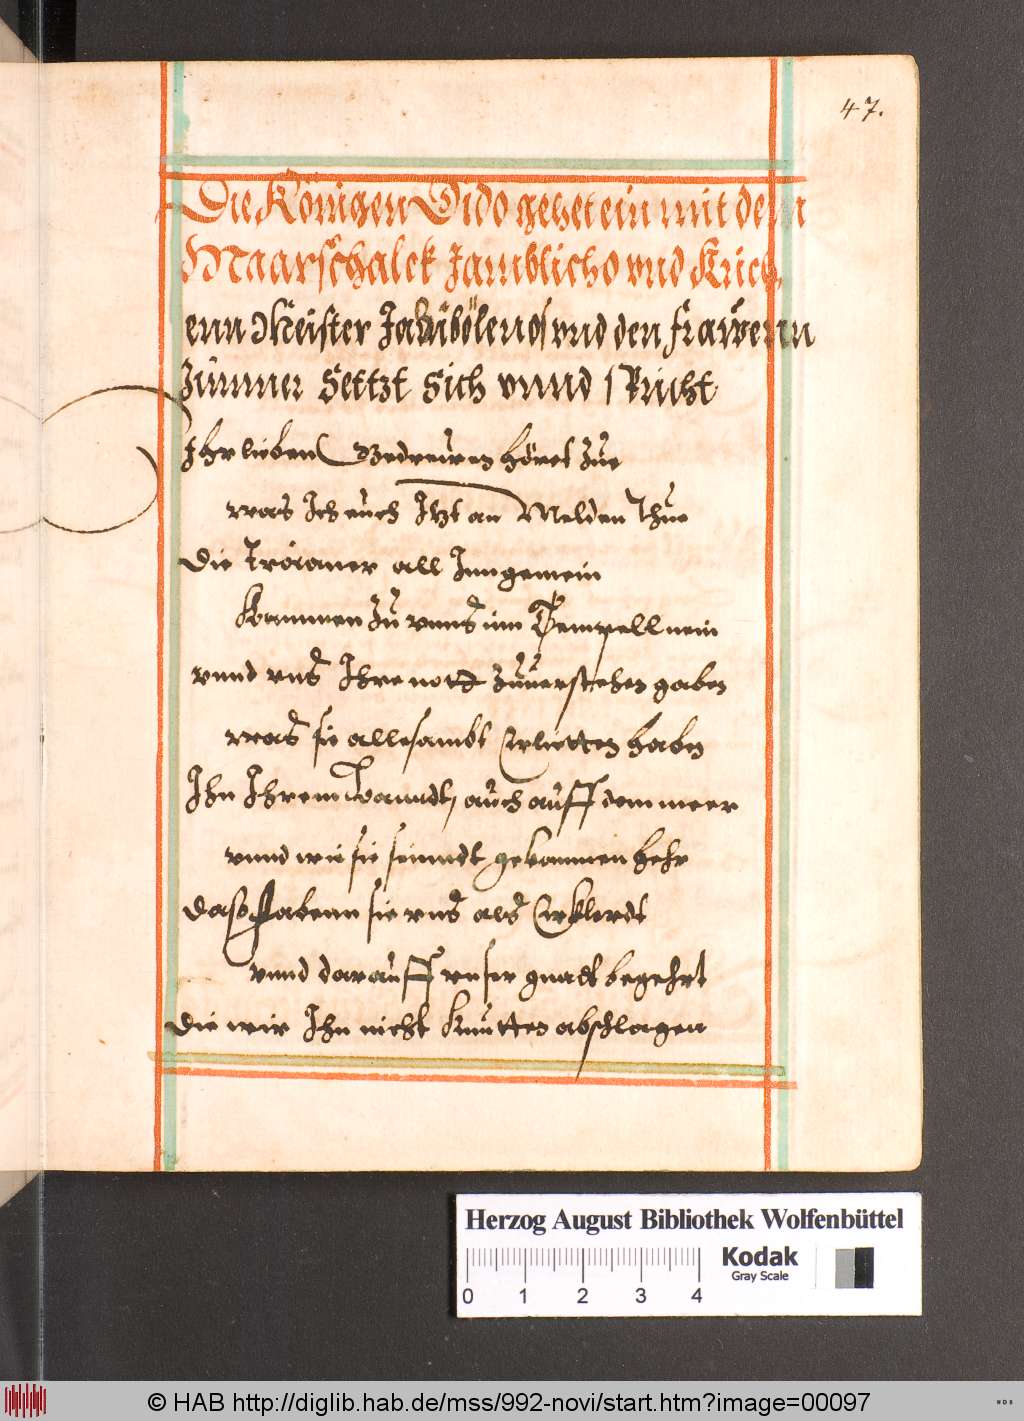 47.
Die Königen Dido gehet ein mit dem
Maarschalck Jamblicho vnd Krieg
enn Meister vnd den frawenn
Zimmer Settzt Sich vnnd spricht
Ihr lieben Gedreuwen höret zue
was Ich euch Itzt an Melden thue
Die Troianer all Inngemein
kammen zu vnns im Tempell nein
vnnd vns Ihre nott zuuerstehen gaben
was sie allesambt Erlietten haben
Ihn Ihrem Lanndt, auch auff dem meer
vnnd wie sie seinndt gekommen hehr
das habenn sie vns als Erklerdt
vnnd darauff vnser gnadt begehrt
die wir Ihn nicht abschlagen
Herzog August Bibliothek Wolfenbüttel
Kodak
Gray Scale
0 1 2 3 4
© HAB http://diglib.hab.de/mss/992-novi/start.htm?image=00097